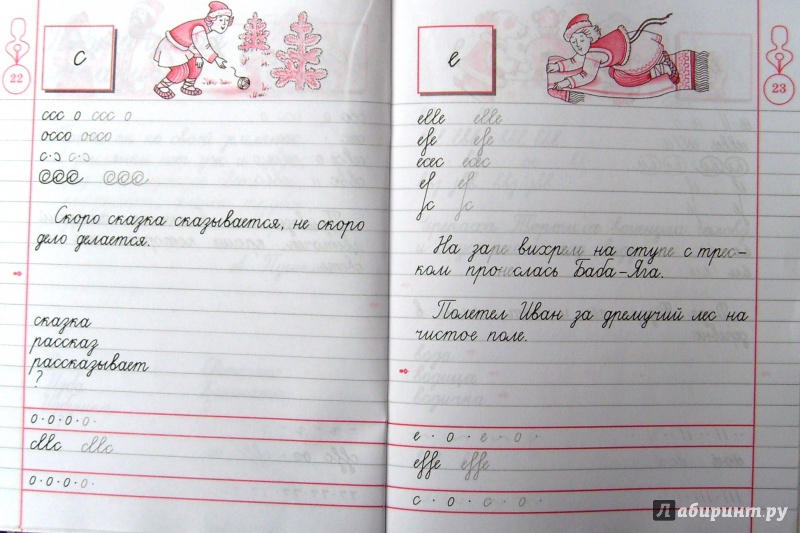 с
22
ссс о ссс о
оссо оссо
с·э с·э
Скоро сказка сказывается, не скоро
дело делается.
сказка
рассказ
рассказывает
?
о·о·о·о·
о·о·о·о·
е
23
еllе еllе
есес есес
На заре вихрем на ступе с трес-
ком пронеслась Баба-Яга.
Полетел Иван за дремучий лес на
чистое поле.
е·о·е·о·
с·о·с·о·
Лабиринт.ру